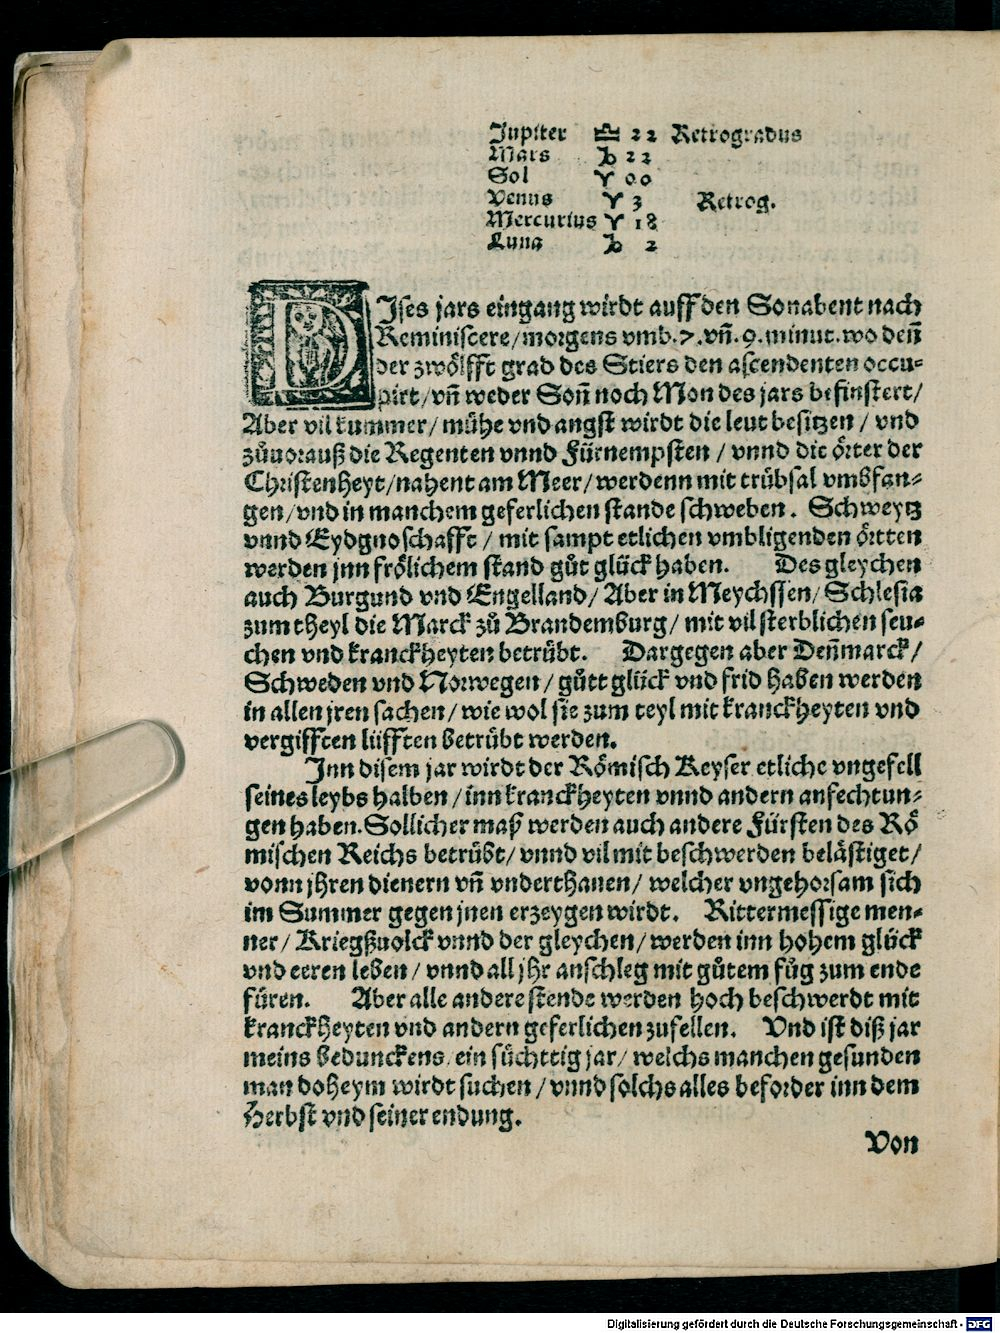 Jupiter ♎ 22 Retrogradus
Mars ♑ 22
Sol ♈ 00
Venus ♈ 3 Retrog.
Mercurius ♈ 18
Luna ♑ 2
DJses jars eingang wirdt auff den Sonabent nach
Reminiscere/morgens vmb.7.vñ.9.minut.wo deñ
der zwoͤlfft grad des Stiers den ascendenten occu-
pirt/vñ weder Soñ noch Mon des jars befinstert/
Aber vil kummer/ mühe vnd angst wirdt die leut besitzen / vnd
zůuorauß die Regenten vnnd Fürnempsten / vnnd die oͤrter der
Christenheyt/nahent am Meer/werdenn mit trübsal vmbfan-
gen/vnd in manchem geferlichen stande schweben. Schweytz
vnnd Eydgnoschafft / mit sampt etlichen vmbligenden oͤrtten
werden jnn froͤlichem stand gůt glück haben. Des gleychen
auch Burgund vnd Engelland/ Aber in Meychssen/ Schlesia
zum theyl die Marck zů Brandemburg/ mit vil sterblichen seu-
chen vnd kranckheyten betrübt. Dargegen aber Deñmarck/
Schweden vnd Norwegen/ gůtt glück vnd frid haben werden
in allen jren sachen/ wie wol sie zum teyl mit kranckheyten vnd
vergifften lüfften betrübt werden.
Jnn disem jar wirdt der Roͤmisch Keyser etliche vngefell
seines leybs halben /inn kranckheyten vnnd andern anfechtun-
gen haben. Sollicher maß werden auch andere Fürsten des Roͤ
mischen Reichs betrübt/ vnnd vil mit beschwerden belästiget/
vonn jhren dienern vñ vnderthanen/ welcher vngehorsam sich
im Summer gegen jnen erzeygen wirdt. Rittermessige men-
ner/ Kriegßuolck vnnd der gleychen/ werden inn hohem glück
vnd eeren leben / vnnd all jhr anschleg mit gůtem fůg zum ende
füren. Aber alle andere stende werden hoch beschwerdt mit
kranckheyten vnd andern geferlichen zufellen. Vnd ist diß jar
meins bedunckens/ein süchttig jar/ welchs manchen gesunden
man doheym wirdt suchen / vnnd solchs alles beforder inn dem
Herbst vnd seiner endung.
Von
Digitalisierung gefördert durch die Deutsche Forschungsgemeinschaft - DFG